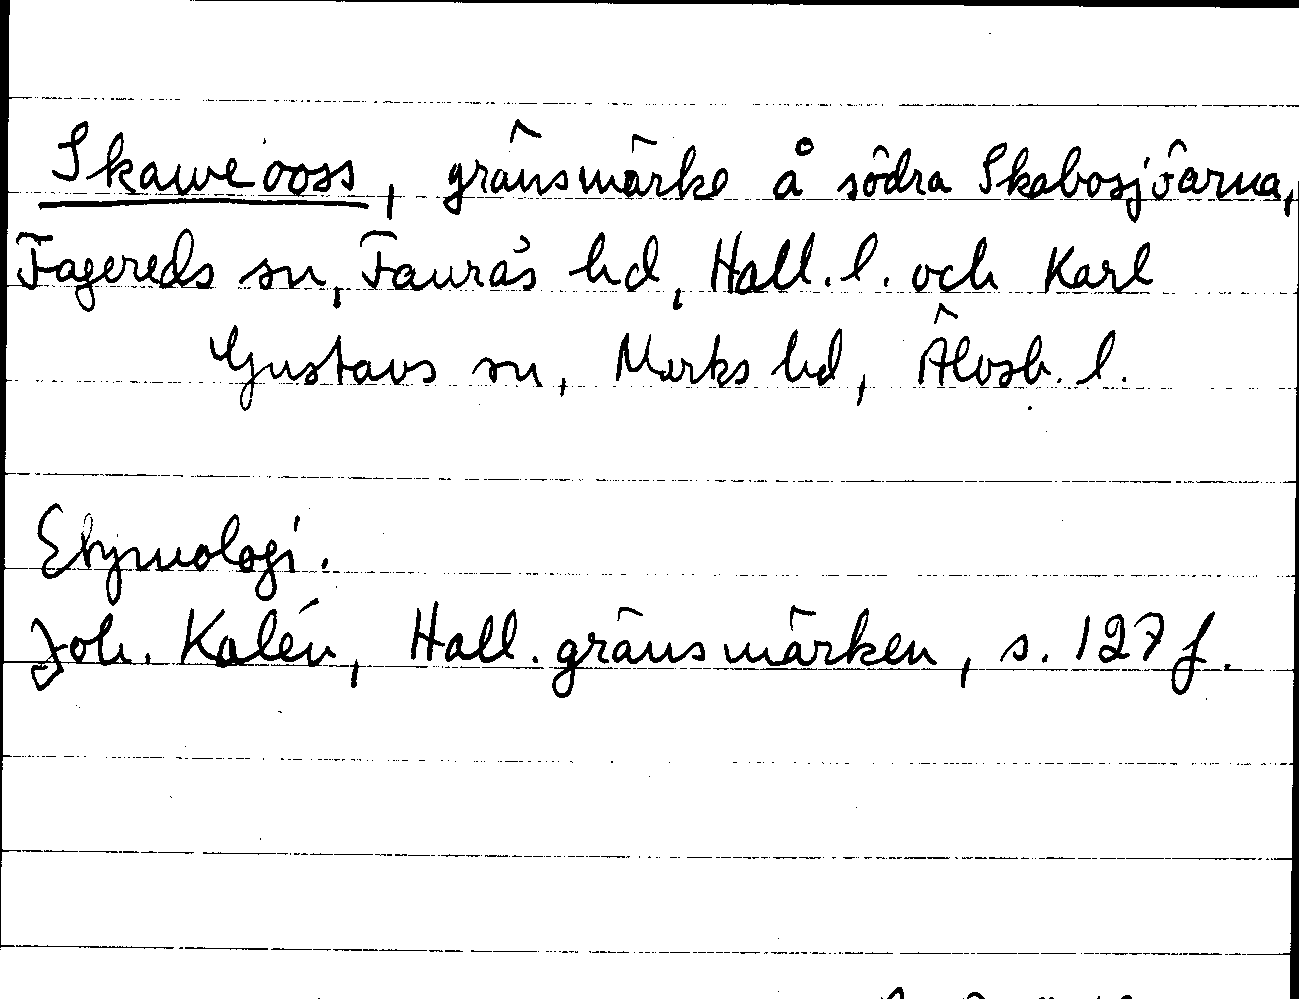 Skawe ooss, gränsmärke å södra Skabosjöarna,
Fagereds sn, Faurås hd, Hall. l. och Karl
Gustavs sn, Marks hd, Älvsb. l.
Etymologi.
Joh. Kalén, Hall. gränsmärken, s. 127 f.